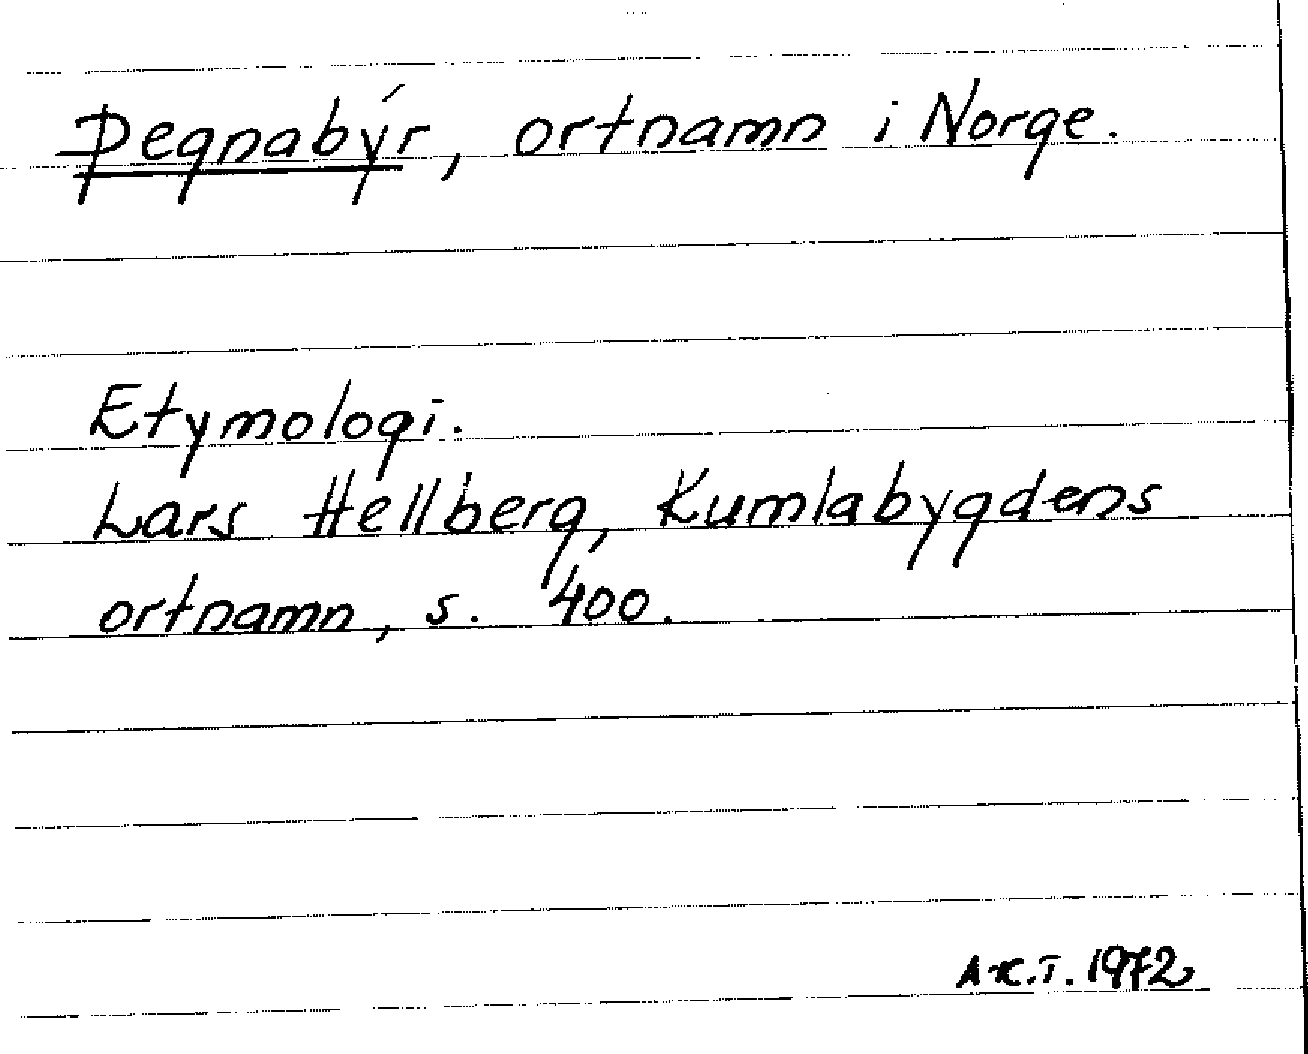 Þegnabýr, ortnamn i Norge.
Etymologi.
Lars Hellberg, Kumlabygdens
ortnamn, s. 400.
A.K.T. 1972